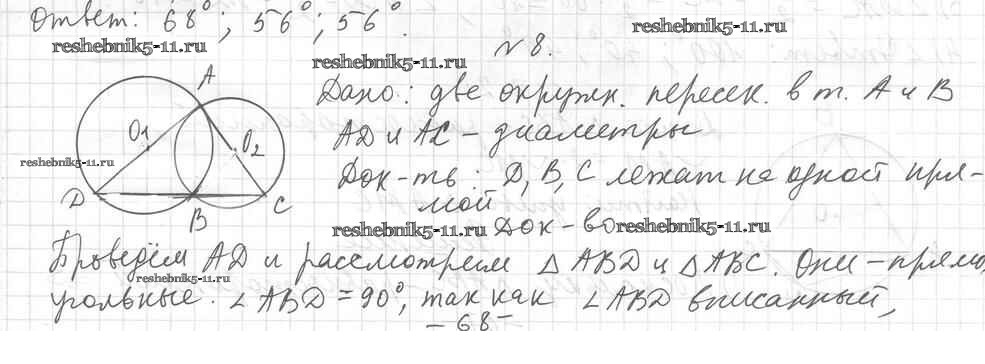 ответ: 68°; 56°; 56°.
reshebnik5-11.ru
reshebnik5-11.ru
№8.
reshebnik5-11.ru
A
Дано: две окружн. пересек. в т. A и B
O1
O2
AD и AC - диаметры
reshebnik5-11.ru
Док-ть: D, B, C лежат на одной пря-
мой
D
B
C
reshebnik5-11.ru
Док-во
reshebnik5-11.ru
Проведём AD и рассмотрим △ABD и △ABC. Они - прямо
reshebnik5-11.ru
угольные. ∠ABD = 90°, так как ∠ABD вписанный,
-68-